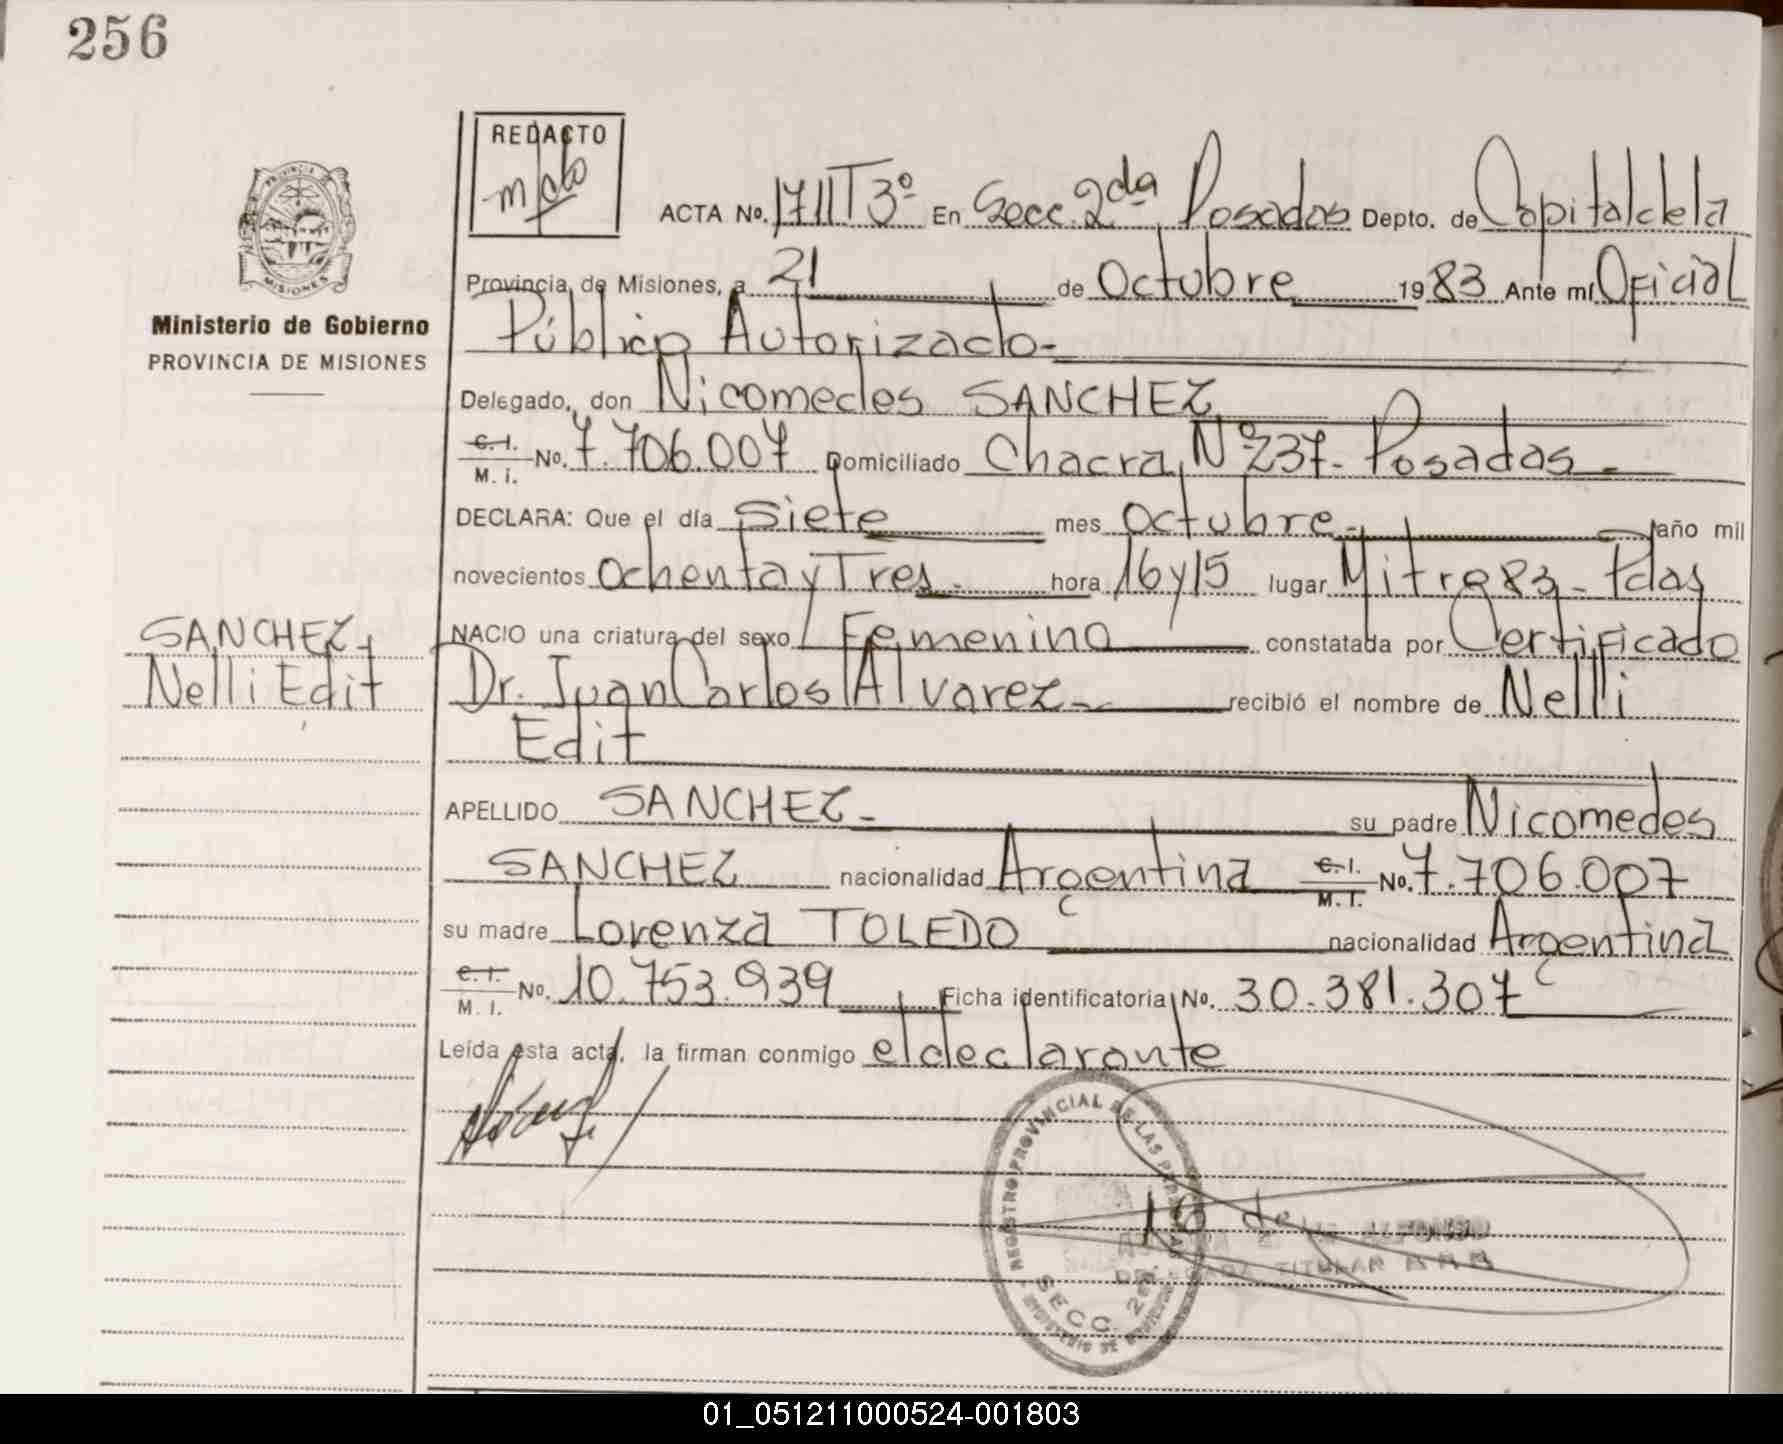 256
REDACTO
PROVINCIA DE
MISIONES
Ministerio de Gobierno
PROVINCIA DE MISIONES
ACTA No. 1711 T 3º En Secc. 2da Posadas Depto. de Capital de la
Provincia de Misiones, a 21 de Octubre 1983 Ante mí Oficial
Público Autorizado-
Delegado, don Nicomedes SANCHEZ
C. I.
M. I. No. 7.706.007 Domiciliado Chacra Nº 237- Posadas-
DECLARA: Que el día siete mes octubre- año mil
novecientos ochenta y Tres- hora 16 y 15 lugar Mitre 83- Pdas
SANCHEZ,
Nelli Edit
NACIO una criatura del sexo Femenino constatada por Certificado
Dr. Juan Carlos Alvarez- recibió el nombre de Nelli
Edit
APELLIDO SANCHEZ- su padre Nicomedes
SANCHEZ nacionalidad Argentina C. I. M. I. No. 7.706.007
su madre Lorenza TOLEDO nacionalidad Argentina
C. I. M. I. No. 10.753.939 Ficha identificatoria No. 30.381.307
Leída esta acta, la firman conmigo el declarante
REGISTRO PROVINCIAL DE LAS PERSONAS
SECC. 2da.
MINISTERIO DE GOBIERNO
ALFONSO
DELEGADA TITULAR
01_051211000524-001803